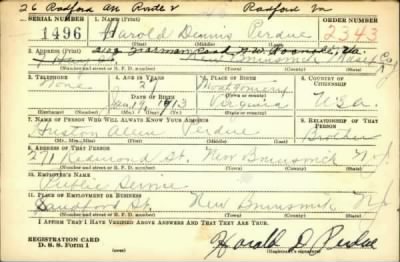 26 Radford Ars Route 2 Radford Va
SERIAL NUMBER 1. NAME (Print) ORDER NUMBER
1496 Harold Dennis Perdue 2343
(First) (Middle) (Last)
2. ADDRESS (Print)
New Brunswick Middlesex Co
(Number and street or R. F. D. number) (Town) (County) (State)
3. TELEPHONE 4. AGE IN YEARS 5. PLACE OF BIRTH 6. COUNTRY OF CITIZENSHIP
None 27 Montgomery
DATE OF BIRTH (Town or county)
Jan 19 1913 Virginia U.S.A.
(Exchange) (No.) (Mo.) (Day) (Yr.) (State or country)
7. NAME OF PERSON WHO WILL ALWAYS KNOW YOUR ADDRESS 8. RELATIONSHIP OF THAT PERSON
Huston Allen Perdue Brother
(Mr., Mrs., Miss) (First) (Middle) (Last)
9. ADDRESS OF THAT PERSON
271 Redmond St. New Brunswick N J
(Number and street or R. F. D. number) (Town) (County) (State)
10. EMPLOYER'S NAME
Public Service
11. PLACE OF EMPLOYMENT OR BUSINESS
Sandford St. New Brunswick N J
(Number and street or R. F. D. number) (Town) (County) (State)
I AFFIRM THAT I HAVE VERIFIED ABOVE ANSWERS AND THAT THEY ARE TRUE.
REGISTRATION CARD
D. S. S. Form 1
Harold D Perdue
(Registrant's signature)